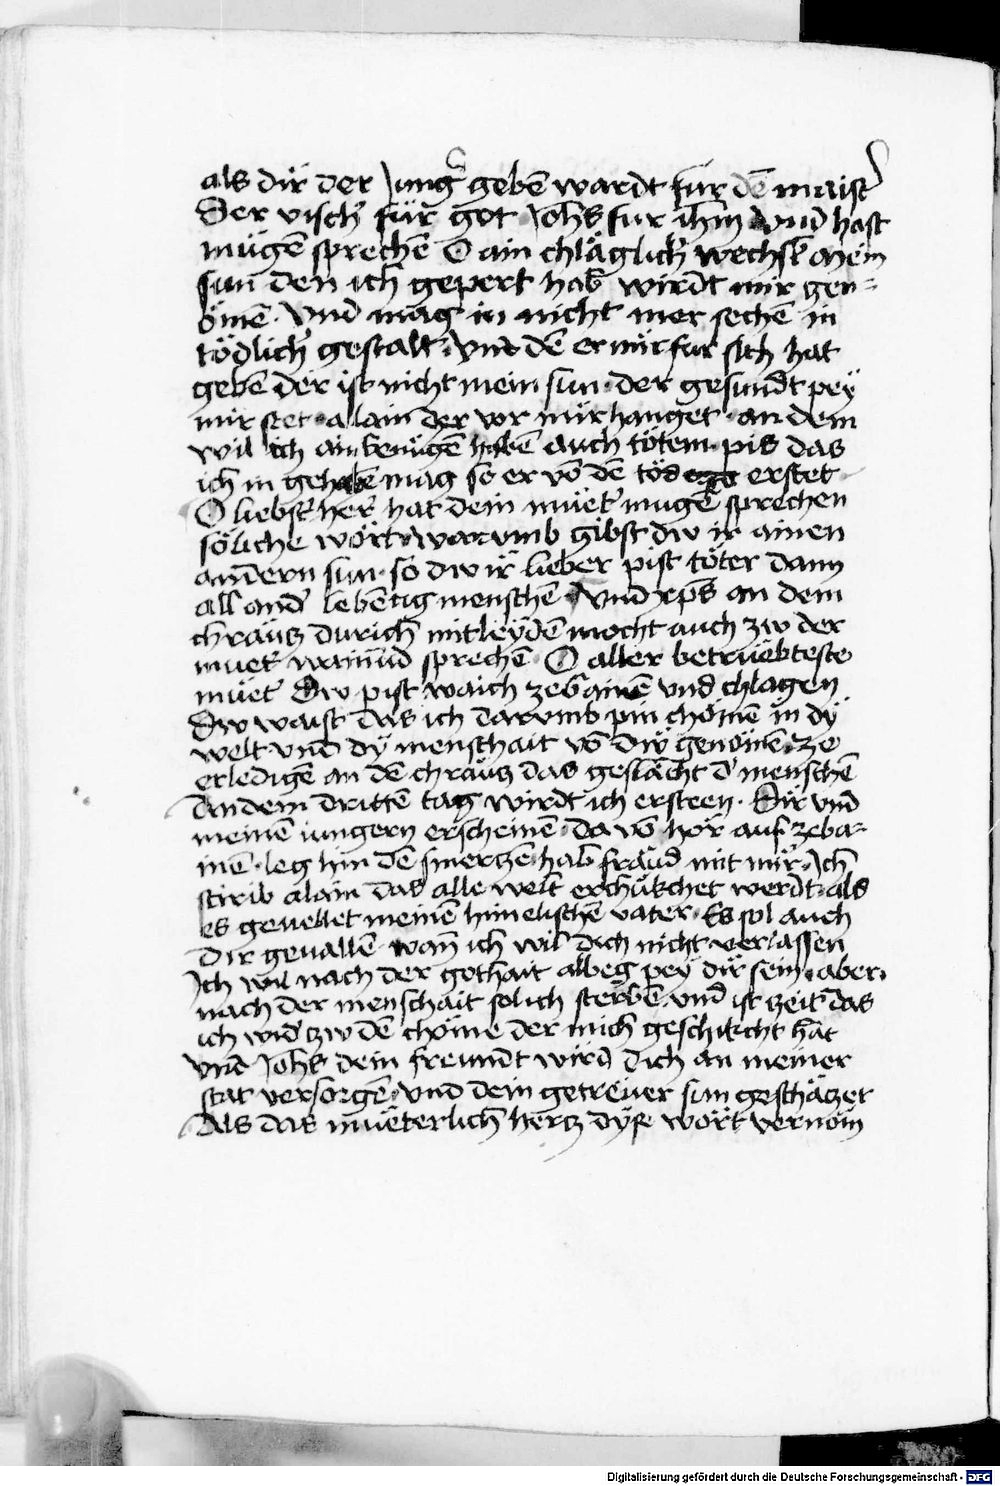 als dir der Jungˀ geben̄ wardt fur den̄ maistˀ
Der vischˀ für got Joh̄s fur ih̄m vnd hast
mügen̄ sprechen̄ O ain chläglichˀ wechsl mein
sun den ich gepert hab wirdt mir gen-
ömen̄ · vnd mag in nicht mer sechen̄ in
tödlichˀ gestalt · vnd den̄ er mir fur sich hat
geben̄ der ist nicht mein sun · der gesundt pey
mir stet · alain der vor mir hanget · an dem
wil ich ain benügen̄ haben̄ auch tötem · pis das
ich in gehaben̄ mag so er vō den̄ töd erstet
O liebstˀ herˀ hat dein müetˀ mugen̄ sprechen
söliche wört warumb gibst dw ir ainen
andern sun · so dw ir lieber pist töter dann
all andˀ lebentig menschen̄ · vnd xp̄s an dem
chräuz durich mitleyden̄ mocht auch zw der
muetˀ wainūd sprechen̄ · O aller betrüebteste
müetˀ Dw pist waich ze wainen̄ vnd chlagen
Dw waist das ich darumb pin chömen̄ in dÿ
welt vnd dÿ menschait vō dir genömen̄ ze
erledigen̄ an den̄ chräuz das geslächt dˀ menschen̄
An dem dritten̄ tag wirdt ich ersteen · Dir vnd
meinen̄ iungern erscheinen̄ · da vō hör auf ze ba-
inen̄ · leg hin den̄ smerczen̄ hab fräud mit mir · Ich
stirib alain das alle welt erchükchet werdt · als
es geuellet meinen̄ himelischen̄ vater · Es sol auch
dir geuallen̄ wan̄ ich wil dich nicht verlassen
Ich wil nach der gothait albeg pey dir sein · aber
nach der menschait sol ich sterben̄ · vnd ist zeit das
ich widˀ zw den̄ chöme der mich geschikcht hat
vnd Joh̄s dein freundt wird dich an meiner
stat versorgen̄ · vnd dein getrewer sun geschäczet
Als das müeterlich hercz dyse wört vernöm
Digitalisierung gefördert durch die Deutsche Forschungsgemeinschaft - DFG